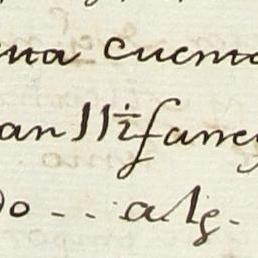 una cuenta
an 11½ faneg
do - - alg.